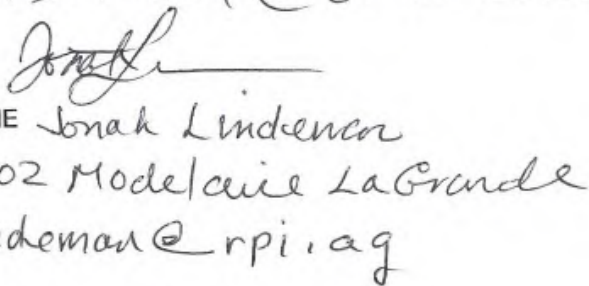 IE Jonah Lindeman
02 Modelaire LaGrande
demon@rpi.ag